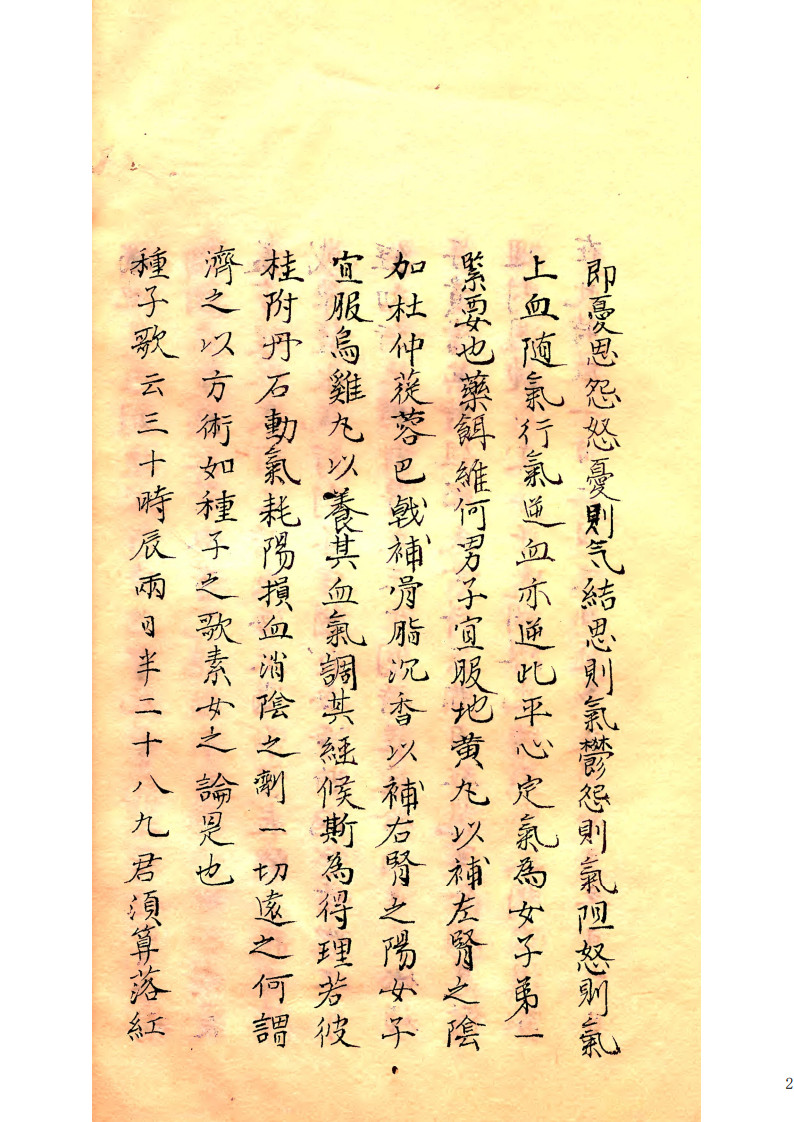 即憂思怨怒憂則气結思則氣鬱怨則氣阻怒則氣
上血随氣行氣逆血亦逆此平心定氣為女子第一
緊要也藥餌維何男子宜服地黄丸以補左腎之陰
加杜仲蓯蓉巴戟補骨脂沉香以補右腎之陽女子
宜服烏雞丸以養其血氣調其經候斯為得理若彼
桂附丹石動氣耗陽損血消陰之劑一切遠之何謂
濟之以方術如種子之歌素女之論是也
種子歌云三十時辰兩日半二十八九君須算落紅
2